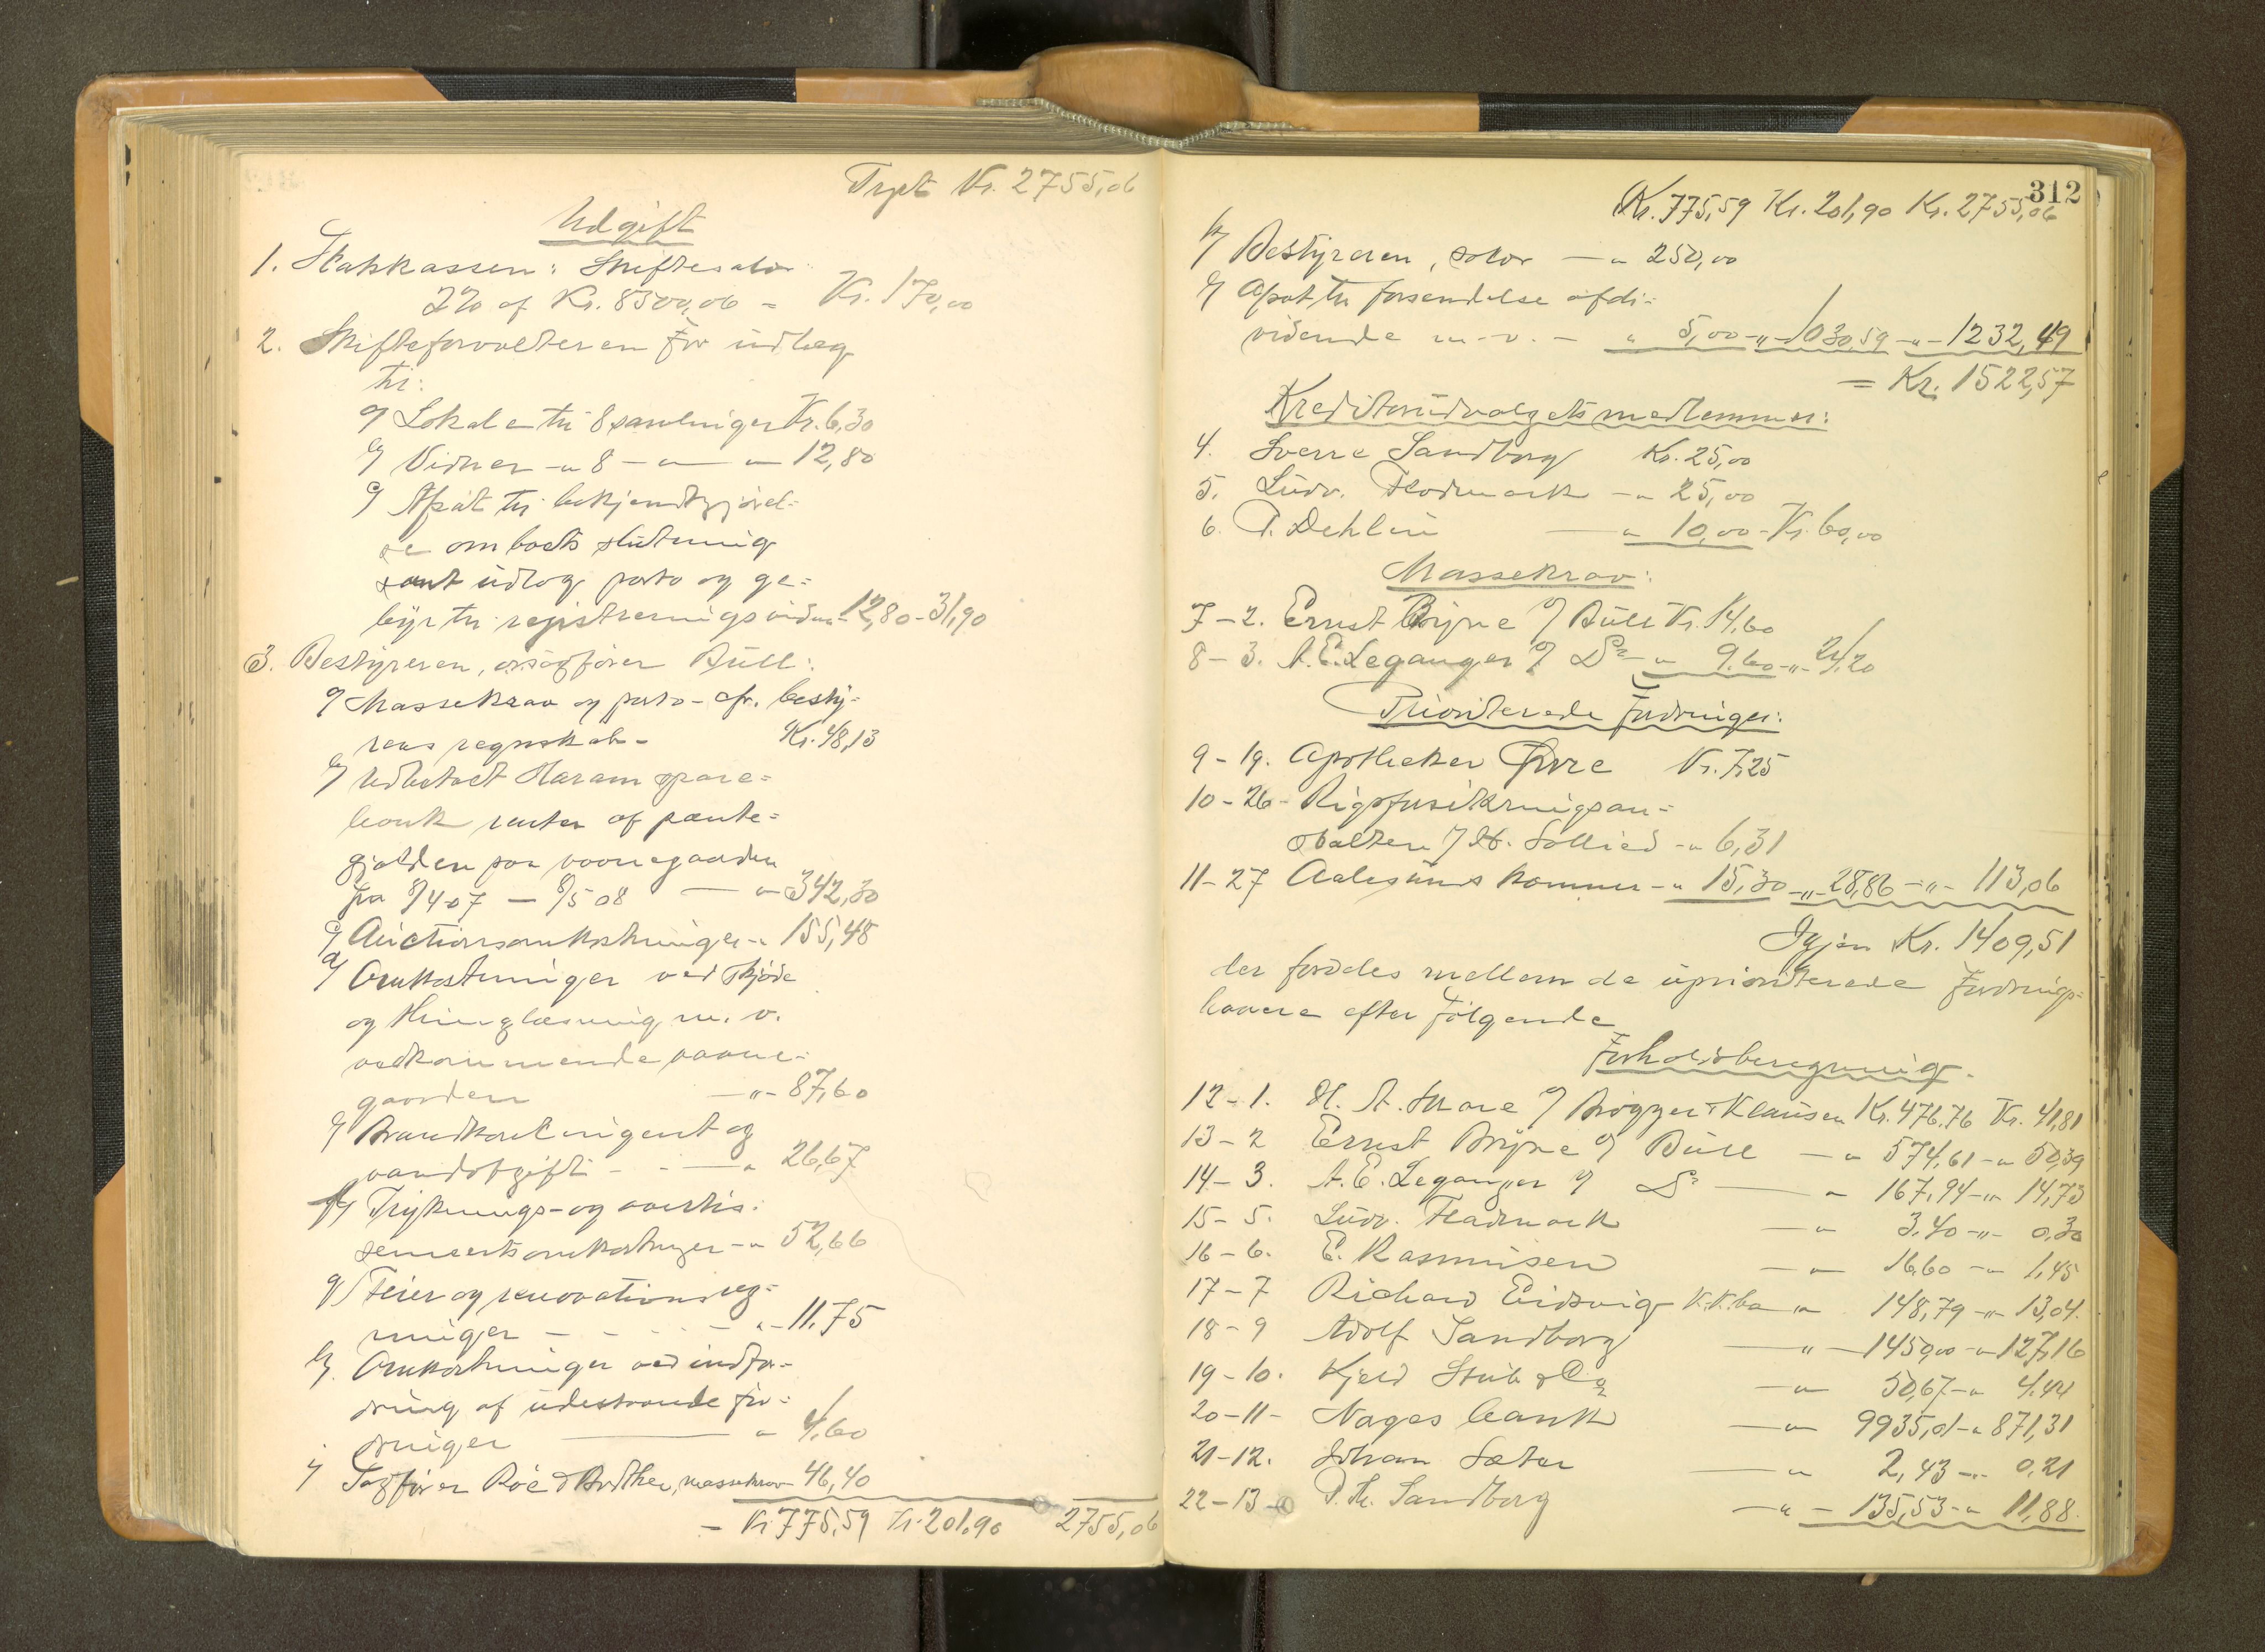 Trpt Kr. 2755,06
Udgift
1. Statskassen: Skifteafor
2% af Kr. 8500,00 = Kr. 170,00
2. Skifteforvalteren for udlæg
til:
a/ Lokale til 8 samlinger Kr. 6,30
b/ Vidner -"- 8 -"- -"- 12,80
c/ Afsat til bekjendtgjørel-
se om boets slutning
samt udlæg porto og ge=
byr til registreringsvidner - 12,80 - 31,90
3. Bestyreren, ovsagfører Bull:
a/ Massekrav og porto - cfr. besty=
rens regnskab - Kr. 48,13
b/ Udbetalt Haram spare=
bank renter af pante=
gjælden paa vaanegaarden
fra 8/4 07 - 8/5 08 -"- 342,30
c/ Auctionsomkostninger -"- 155,48
d/ Omkostninger ved skjøde
og thinglæsning m. v.
vedkommende vaane-
gaarden -"- 87,60
e/ Brandkontingent og
vandafgift - - -"- 26,67
f/ Tryknings- og avertis:
sementsomkostninger -"- 52,66
g/ Feier og renovationsreg=
ninger - - - -"- 11,75
h/ Omkostninger ved indfor-
dring af udestaaende for=
dringer -"- 4,60
i/ Sagfører Roé & Brøther, massekrav 46,40
- Kr. 775,59 Kr. 201,90 2755,06
312
Kr. 775,59 Kr. 201,90 Kr. 2755,06
k/ Bestyreren, salær -"- 250,00
l/ Afsat til forsendelse af di=
vidende m. v. - " 5,00 -"- 1030,59 -"- 1232,49
= Kr. 1522,57
Kreditorudvalgets medlemmer:
4. Sverre Sandborg Kr. 25,00
5. Ludv. Flademark -"- 25,00
6. P. Dehlin -"- 10,00 - Kr. 60,00
Massekrav:
7 - 2. Ernst Brijne v/ Bull Kr. 14,60
8 - 3. A. E. Leganger v/ Do -"- 9,60 -"- 24,20
Prioriterede Fordringer:
9 - 19. Apotheker Thore Kr. 7,25
10 - 26 - Rigsforsikringsan=
stalten v/ H. Sollied -"- 6,31
11 - 27 Aalesunds kommune -"- 15,30 -"- 28,86 -"- 113,06
Igjen Kr. 1409,51
der fordeles mellem de uprioriterede Fordrings=
havere efter følgende
Forholdsberegning.
12 - 1. H. A. Snare v/ Brøgger & Klausen Kr. 476,76 Kr. 41,81
13 - 2 Ernst Brijne v/ Bull -"- 574,61 -"- 50,39
14 - 3. A. E. Leganger v/ Do -"- 167,94 -"- 14,73
15 - 5. Ludv. Flademark -"- 3,40 -"- 0,30
16 - 6. E. Rasmusen -"- 16,60 -"- 1,45
17 - 7 Richard Eidsvig K.K.bo -"- 148,79 -"- 13,04
18 - 9 Adolf Sandborg -"- 1450,00 -"- 127,16
19 - 10. Kjeld Stub & Co -"- 50,67 -"- 4,44
20 - 11 - Norges bank -"- 9935,01 -"- 871,31
21 - 12. Johan Sæter -"- 2,43 -"- 0,21
22 - 13 - P. Th. Sandborg -"- 135,53 -"- 11,88